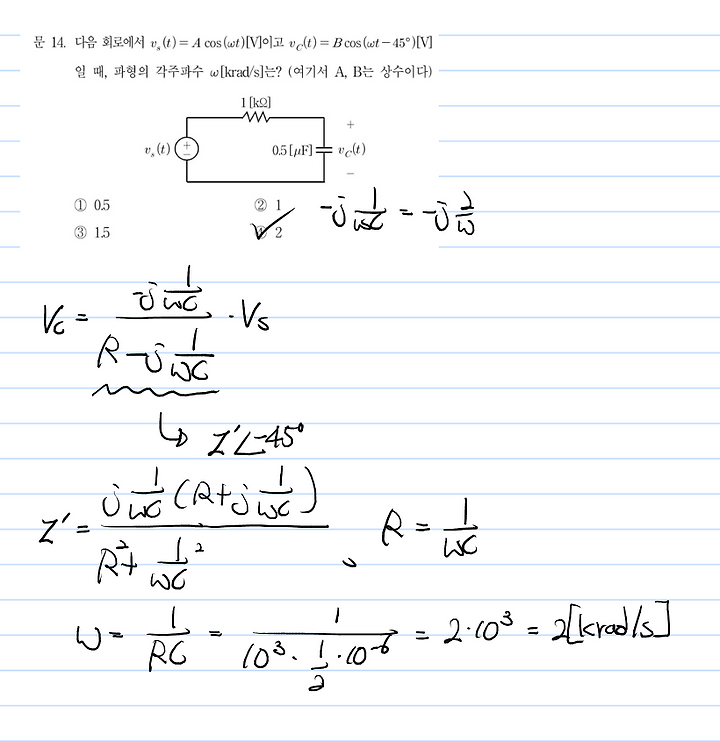 문 14. 다음 회로에서 v_s(t) = A cos(ωt)[V]이고 v_C(t) = B cos(ωt − 45°)[V]
일 때, 파형의 각주파수 ω[krad/s]는? (여기서 A, B는 상수이다)
1[kΩ]
+
v_s(t) + − 0.5[μF] v_C(t)
−
① 0.5 ② 1
③ 1.5 ✓ 2
-j 1/ωC = -j 2/ω
V_C = (-j 1/ωC)/(R - j 1/ωC) · V_s
↳ Z'∠-45°
Z' = (j 1/ωC (R + j 1/ωC))/(R² + 1/ωC²) , R = 1/ωC
ω = 1/RC = 1/(10³ · 1/2 · 10⁻⁶) = 2·10³ = 2[krad/s]